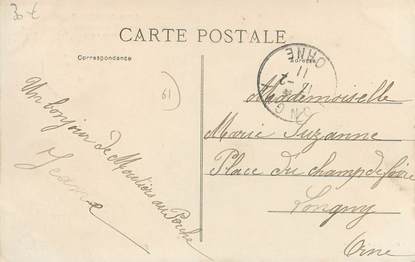 30 €
CARTE POSTALE
Correspondance
Adresse
61
ORNE
11
Un bonjour de Moutiers au Perche
Jeanne
Mademoiselle
Marie Suzanne
Place du champ de foire
Longny
Orne